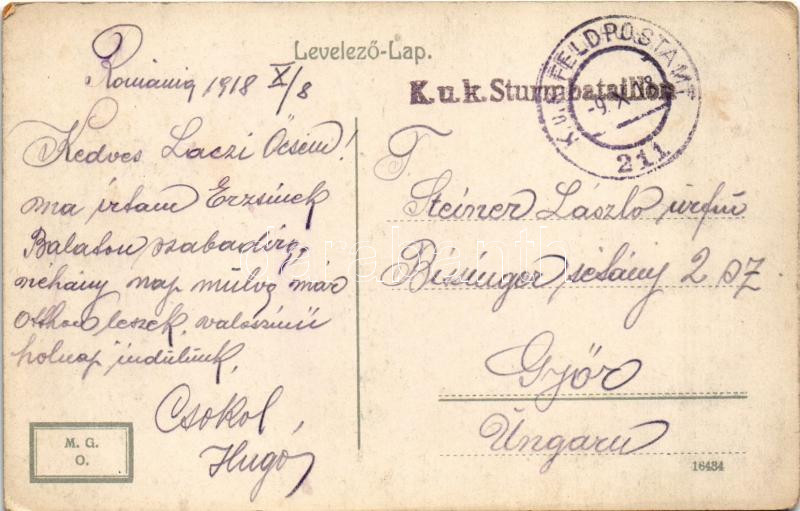 Levelező-Lap.
Románia 1918 X/8
Kedves Laczi Öcsém!
ma írtam Erzsinek
Balaton szabadira,
néhány nap múlva már
otthon leszek, valoszinü
holnap indulunk,
Csokol,
Hugó
M. G.
O.
K.u.k. Sturmbataillon
K.u.K. FELDPOSTAMT
-9. X. 18
211
T
Steiner László urfi
Bisinger sétány 2 sz
Győr
Ungarn
16434
darabanth